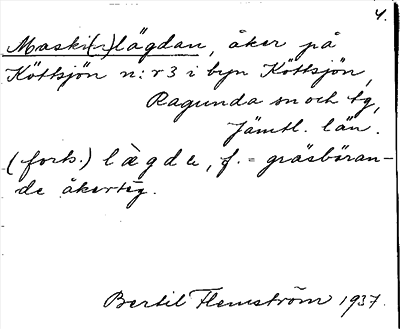 4.
Maski(n)lägdan, åker på
Köttsjön n:r 3 i byn Köttsjön,
Ragunda sn och tg,
Jämtl. län.
(forts.) lägde, f. = gräsbäran-
de åkerteg.
Bertil Flemström 1937.